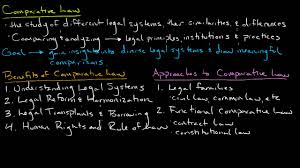 Comparative Law
• the study of different legal systems, their similarities, & differences
• Comparing & analyzing → legal principles, institutions & practices
Goal → gain insights into diverse legal systems & draw meaningful
comparisons
Benefits of Comparative Law
1. Understanding Legal Systems
2. Legal Reform & Harmonization
3. Legal Transplants & Borrowing
4. Human Rights and Rule of Law
Approaches to Comparative Law
1. Legal families
• civil law, common law, etc
2. Functional Comparative Law
• contract law
• constitutional law